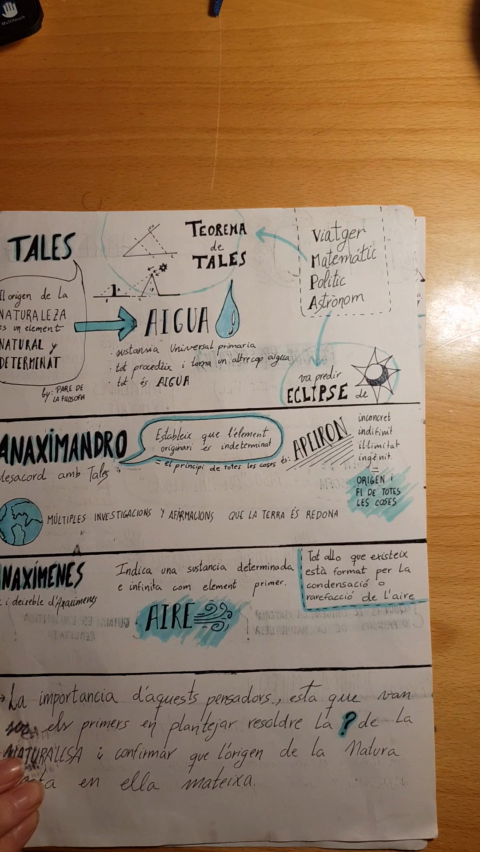 TALES
TEOREMA
de
TALES
Viatger
Matemàtic
Polític
Astrònom
El origen de la
NATURALEZA
es un element
NATURAL y
DETERMINAT
by: PARE DE
LA FILOSOFIA
AIGUA
· sustansia Universal primaria
· tot procedeix i torna un altre cop aigua
· tot és AIGUA
va predir
ECLIPSE de
ANAXIMANDRO
desacord amb Tales
Estableix que l'element
originari es indeterminat
= el principi de totes les coses és:
APEIRON
inconcret
indifinit
il·limitat
ingènit
=
ORIGEN i
FI DE TOTES
LES COSES
MÚLTIPLES INVESTIGACIONS Y AFIRMACIONS QUE LA TERRA ÉS REDONA
NAXÍMENES
i deixeble d'Anaxímenes
Indica una sustancia determinada
e infinita com element primer.
AIRE
Tot allo que existeix
està format per la
condensació o
rarefacció de l'aire
→ La importancia d'aquests pensadors, esta que van
ser els primers en plantejar resoldre la ? de la
NATURALESA i confirmar que l'origen de la Natura
en ella mateixa.